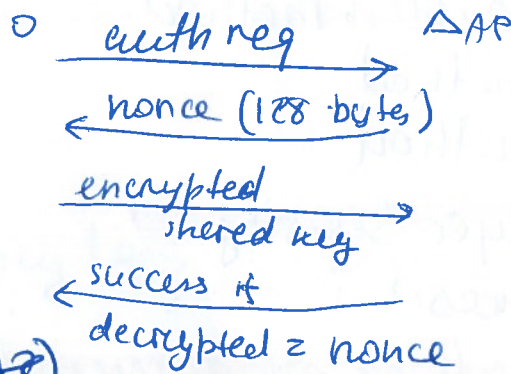 O auth req △AP
nonce (128 bytes)
encrypted
shared key
success if
decrypted = nonce